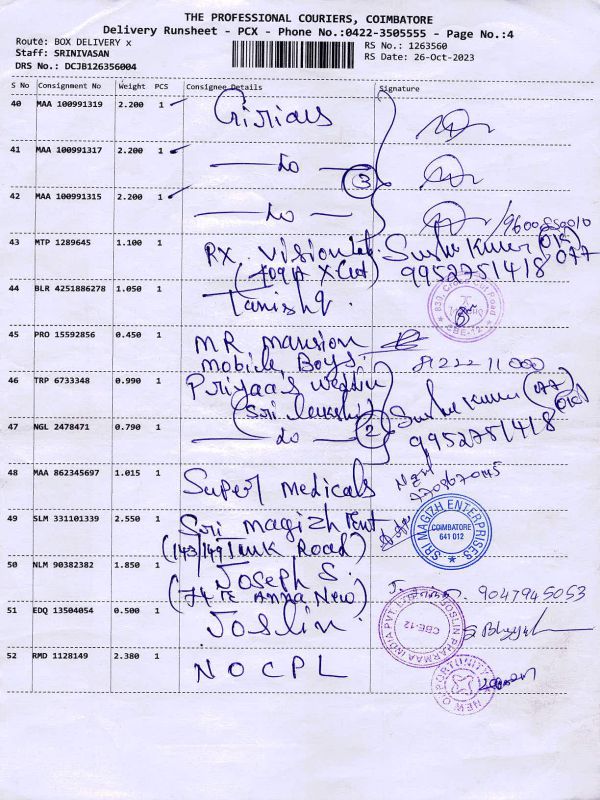 THE PROFESSIONAL COURIERS, COIMBATORE
Delivery Runsheet - PCX - Phone No.:0422-3505555 - Page No.:4
Route: BOX DELIVERY x
RS No.: 1263560
Staff: SRINIVASAN
RS Date: 26-Oct-2023
DRS No.: DCJB126356004
S No Consignment No Weight PCS Consignee Details Signature
40 MAA 100991319 2.200 1
41 MAA 100991317 2.200 1 — do —
3
42 MAA 100991315 2.200 1 — do —
43 MTP 1289645 1.100 1 RX Vision
9952751418
44 BLR 4251886278 1.050 1 Tanishq.
45 PRO 15592856 0.450 1 MR mansion
mobile, Boys. 8122211000
46 TRP 6733348 0.990 1 Priyaas
47 NGL 2478471 0.790 1 — do — 2
9952751418
48 MAA 862345697 1.015 1 Super medicals
49 SLM 331101339 2.550 1 Sri magizh Ent
(143/149 Tank Road)
SRI MAGIZH ENTERPRISES
COIMBATORE
641 012
50 NLM 90382382 1.850 1 Joseph S.
(74 TE Anna New) 9047945053
51 EDQ 13504054 0.500 1 Joslin
CBE-12
52 RMD 1128149 2.380 1 NOCPL